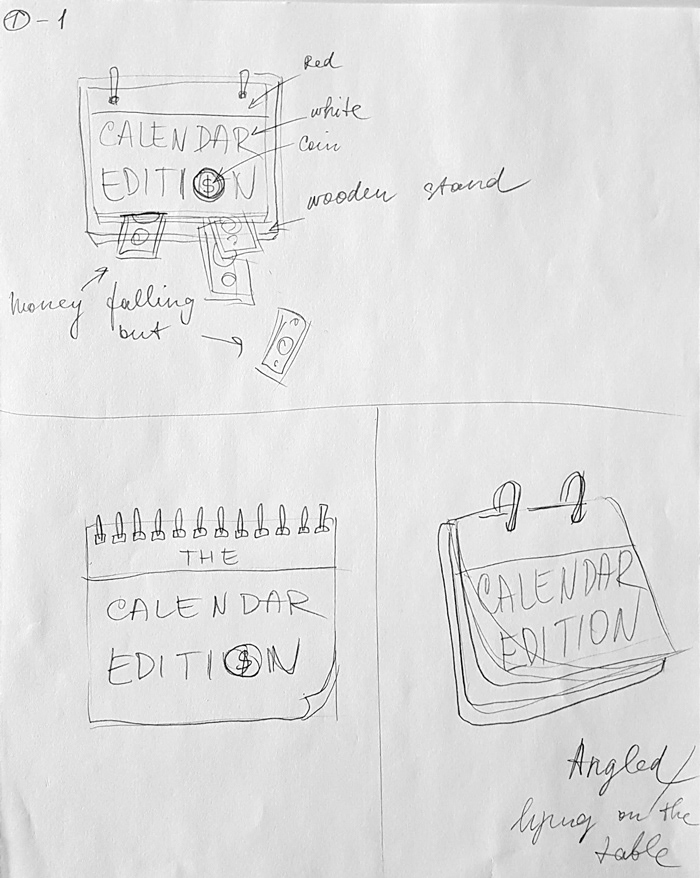 ① - 1
Red
white
Coin
CALENDAR
EDITI$N
wooden stand
money falling
out
THE
CALENDAR
EDITI$N
CALENDAR
EDITION
Angled/
lying on the
table